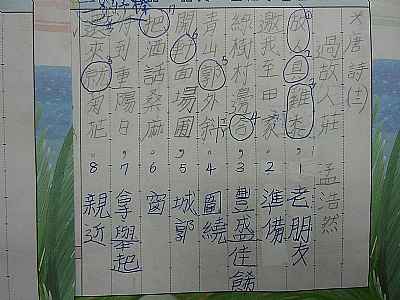 ※唐詩
過故人莊 孟浩然
故人具雞黍，1 老朋友
邀我至田家。2 進備
綠樹村邊合，3 豐盛佳餚
青山郭外斜。4 圍繞
開軒面場圃，5 城郭
把酒話桑麻。6 窗
待到重陽日，7 拿舉起
還來就菊花。8 親近